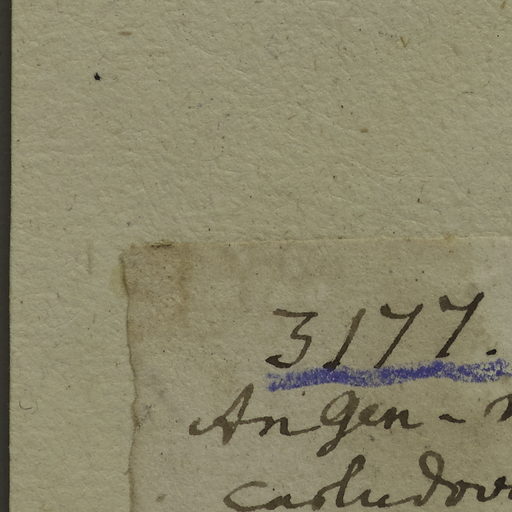 3177.
An Gen-
carludov